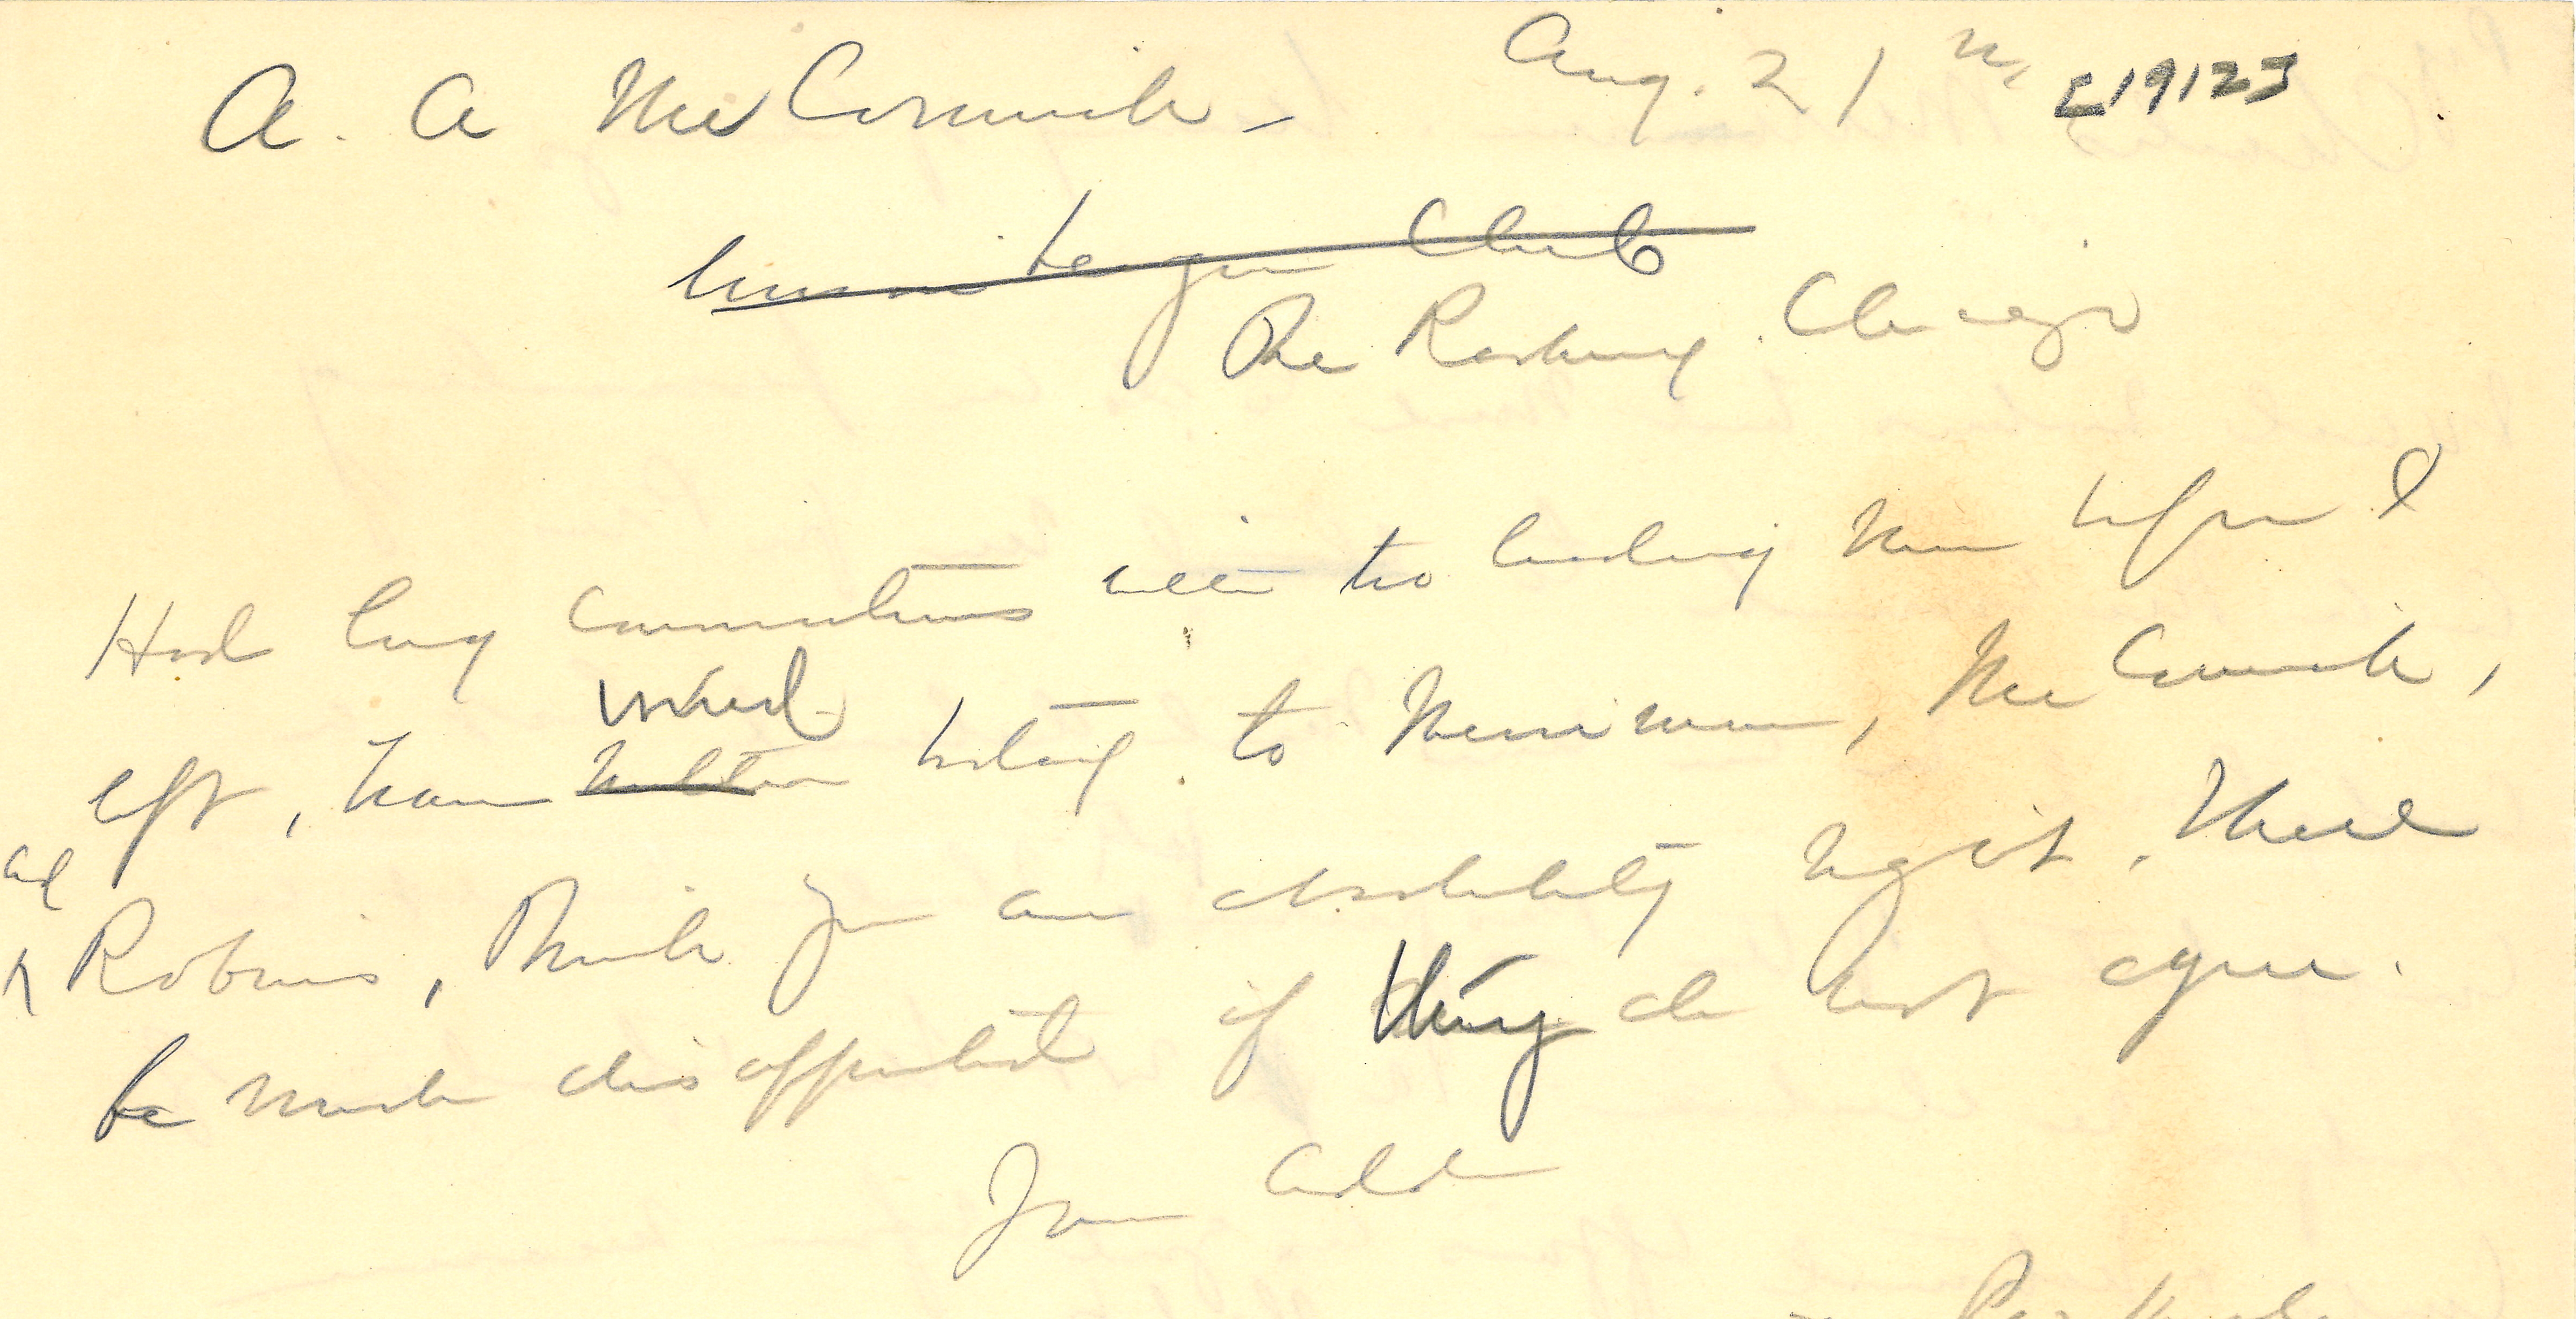 A. A McCormick - Aug. 21st, [1912]
Union League Club
The Roxbury. Chicago
Had long conversations with two leading men before I
left, have wired
today. to Merriman, McCormick,
and
Robins, Think you are absolutely right. Shall
be much disappointed if they do not agree.
Jane Addams